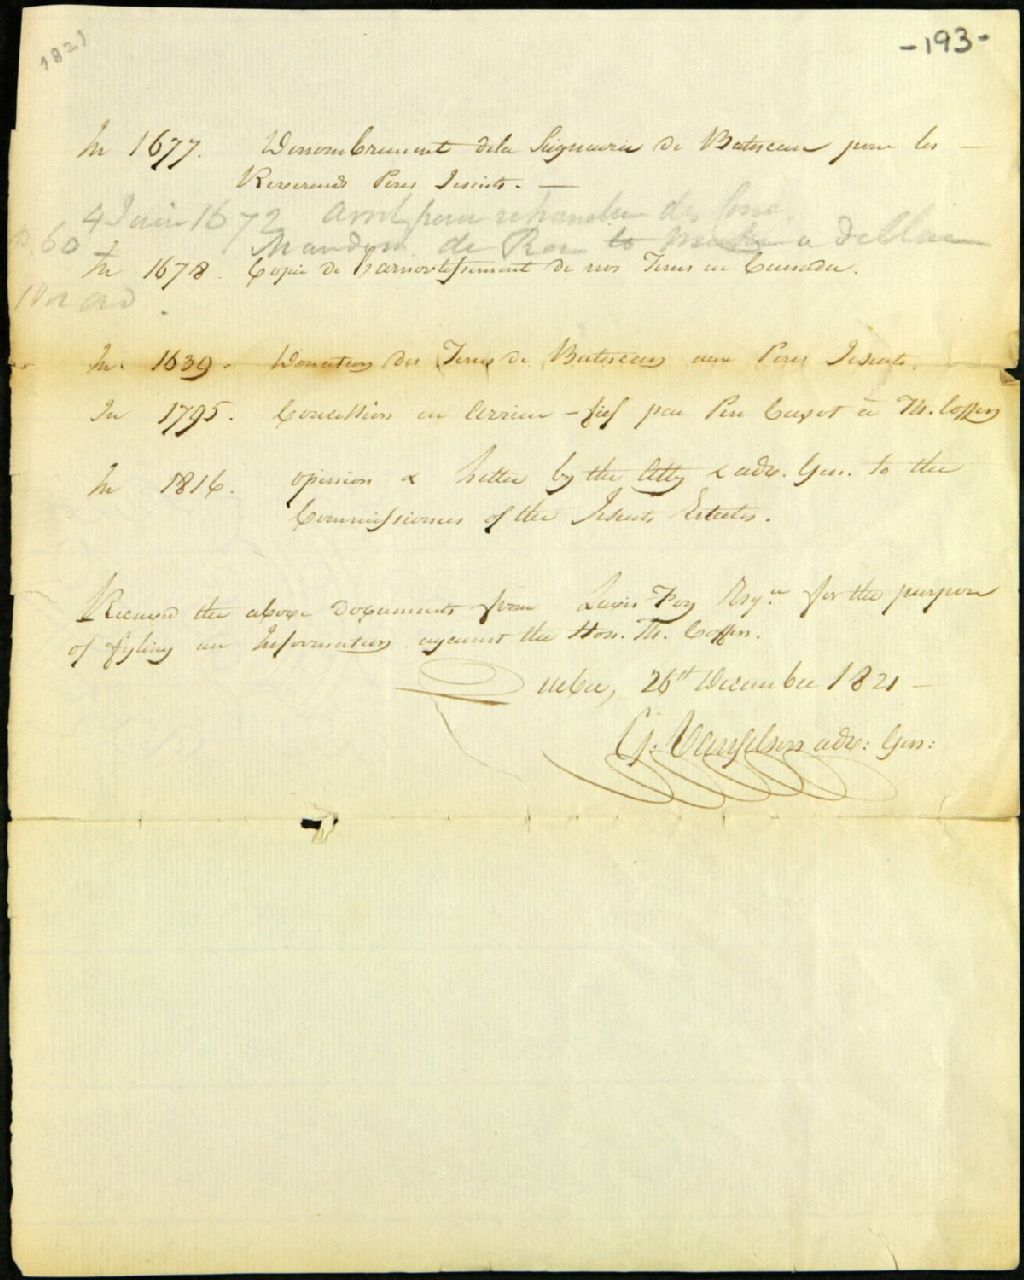 1821
-193-
In 1677. Denombrement de la Seigneurie de Batiscan pour les —
Reverends Peres Jesuits. —
4 Juin 1672 pour des
60 de a
In 1678. Copie de l'amortissement de nos Terres en Cannada.
In 1639. Donation des Terres de Batiscan aux Peres Jesuits.
In 1795. Concession en arriere-fief par Pere Cazot à Th. Coffin
In 1816. opinion & Letter by the Atty & adv. Gen. to the
Commissioners of the Jesuits Estates.
Received the above documents from Lewis Foy Esqr. for the purpose
of fyling an Information against the Hon. Th. Coffin.
Quebec, 26th December 1821 —
G. Vanfelson adv: Gen: